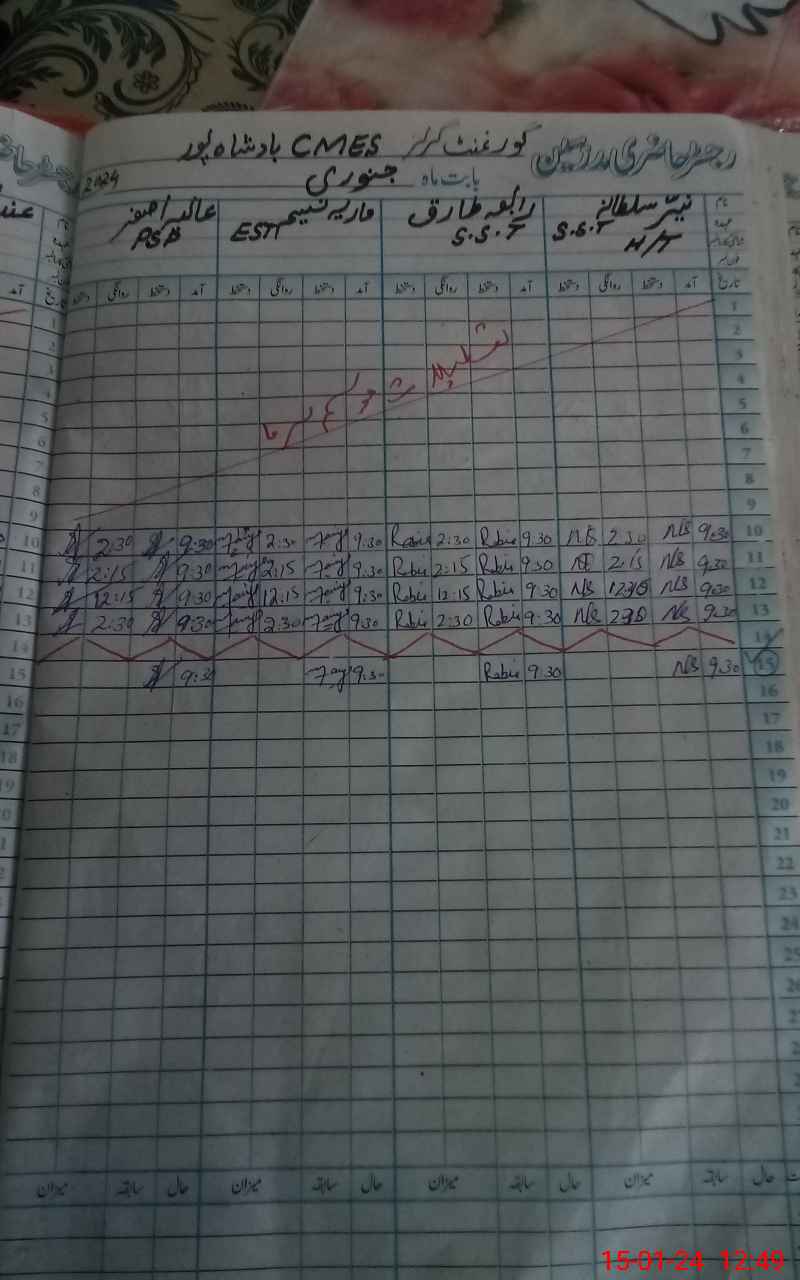 رجسٹر حاضری مدرسین گورنمنٹ گرلز CMES بادشاہ پور
بابت ماہ جنوری 2024
نام نیئر سلطانہ رابعہ طارق ماریہ نسیم عالیہ اصغر
عہدہ S.S.T H/T S.S.T EST PSB
تاریخ آمد دستخط روانگی دستخط آمد دستخط روانگی دستخط آمد دستخط روانگی دستخط آمد دستخط روانگی دستخط
1
2
3
4
5
6
7
8
9
تعطیلات موسم سرما
10 9:30 NB 2:30 NB 9:30 Rabia 2:30 Rabia 9:30 2:30 9:30 2:30
11 9:30 NB 2:15 NB 9:30 Rabia 2:15 Rabia 9:30 2:15 9:30 2:15
12 9:30 NB 12:15 NB 9:30 Rabia 12:15 Rabia 9:30 12:15 9:30 12:15
13 9:30 NB 2:30 NB 9:30 Rabia 2:30 Rabia 9:30 2:30 9:30 2:30
14
15 9:30 NB 9:30 Rabia 9:30 9:30
16
17
18
19
20
21
22
23
24
25
حال سابقہ میزان حال سابقہ میزان حال سابقہ میزان حال سابقہ میزان
15-01-24 12:49